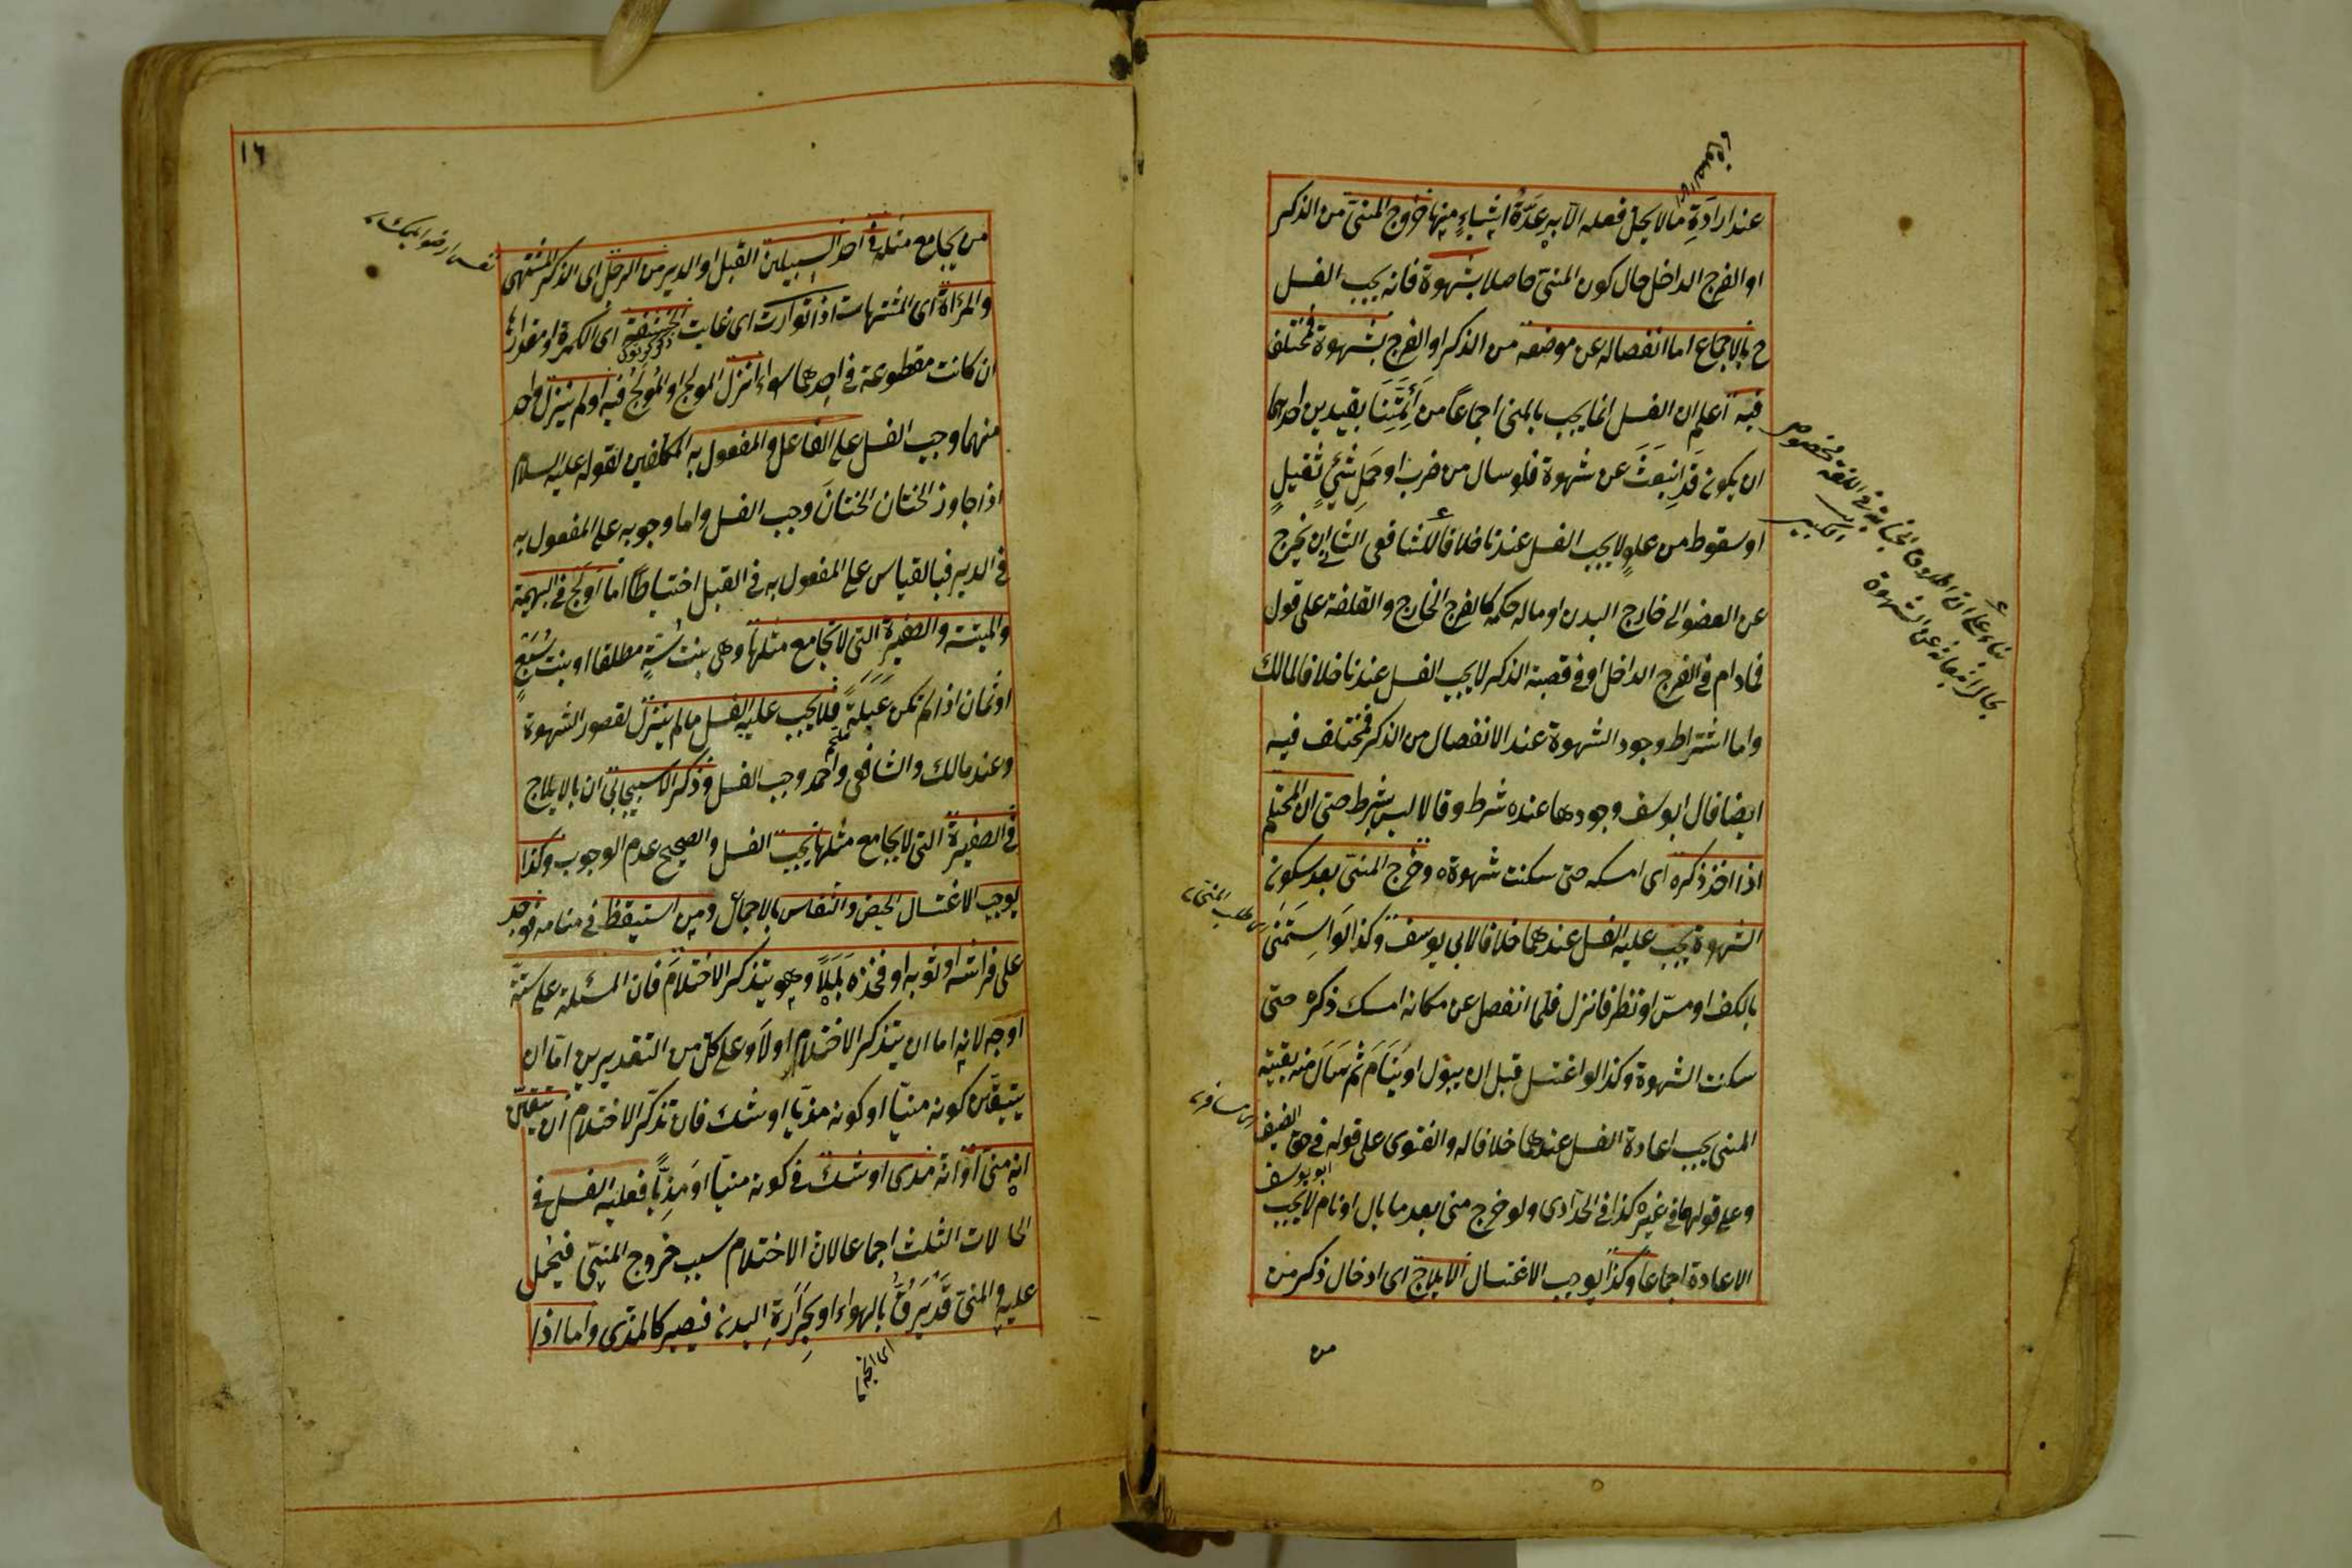 عند ارادة ما لا يحل فعله الا به عدة اشياء منها خروج المنى من الذكر
او الفرج الداخل حال كون المنى حاصلا بشهوة فانه يجب الغسل
ح بالاجماع اما انفصاله عن موضعه من الذكر او الفرج بشهوة فمختلف
فيه اعلم ان الغسل انما يجب بالمنى اجماعا من ائمتنا بقيدين احدهما
ان يكون قد انبعث عن شهوة فلو سال من ضرب او حمل شئ ثقيل
او سقوط من علو لا يجب الغسل عندنا خلافا للشافعى الثانى ان يخرج
عن العضو الى خارج البدن او ما له حكمه كالفرج الخارج والقلفة على قول
فما دام فى الفرج الداخل او فى قصبة الذكر لا يجب الغسل عندنا خلافا لمالك
واما اشتراط وجود الشهوة عند الانفصال من الذكر فمختلف فيه
ايضا قال ابو يوسف وجودها عنده شرط وقالا ليس بشرط حتى ان المحتلم
اذا اخذ ذكره اى امسكه حتى سكنت شهوته وخرج المنى بعد سكون
الشهوة يجب عليه الغسل عندهما خلافا لابى يوسف وكذا لو استمنى
بالكف او مس او نظر فانزل فلما انفصل عن مكانه امسك ذكره حتى
سكنت الشهوة وكذا لو اغتسل قبل ان يبول او ينام ثم سال منه بقية
المنى يجب اعادة الغسل عندهما خلافا له والفتوى على قوله فى حق الضيف
ابو يوسف
وعلى قولهما فى غيره كذا فى الحدادى ولو خرج منى بعد ما بال او نام لا يجب
الاعادة اجماعا وكذا يوجب الاغتسال الايلاج اى ادخال ذكر من
من
بناء على ان اطلاق الجنابة فى اللغة مخصوص
بحال انبعاثه عن الشهوة
١٦
من يجامع مثله فى احد السبيلين القبل او الدبر من الرجل اى الذكر المشتهى
والمرأة اى المشتهات اذا توارت اى غابت الحشفة اى الكمرة او مقدارها
ان كانت مقطوعة فى احدهما سواء انزل المولج او المولج فيه او لم ينزل واحد
منهما وجب الغسل على الفاعل والمفعول به المكلفين لقوله عليه السلام
اذا جاوز الختان الختان وجب الغسل واما وجوبه على المفعول به
فى الدبر فبالقياس على المفعول به فى القبل احتياطا اما اولج فى البهيمة
والميتة والصغيرة التى لا تجامع مثلها وهى بنت ستة مطلقا او بنت سبع
او ثمان اذا لم تكن عبلة فلا يجب عليه الغسل ما لم ينزل لقصور الشهوة
وعند مالك والشافعى واحمد وجب الغسل وذكر الاسبيجابى ان بالايلاج
فى الصغيرة التى لا يجامع مثلها يجب الغسل والصحيح عدم الوجوب وكذا
يوجب الاغتسال الحيض والنفاس بالاجماع ومن استيقظ فى منامه فوجد
على فراشه او ثوبه او فخذه بللا وهو يتذكر الاحتلام فان المسئلة على ستة
اوجه لانه اما ان يتذكر الاحتلام اولا وعلى كل من التقديرين اما ان
يتيقن كونه منيا او كونه مذيا او شك فان تذكر الاحتلام ان تيقن
انه منى او انه مذى او شك فى كونه منيا او مذيا فعليه الغسل فى
الحالات الثلث اجماعا لان الاحتلام سبب خروج المنى فيحمل
عليه والمنى قد يرق بالهواء او بحرارة البدن فيصير كالمذى واما اذا